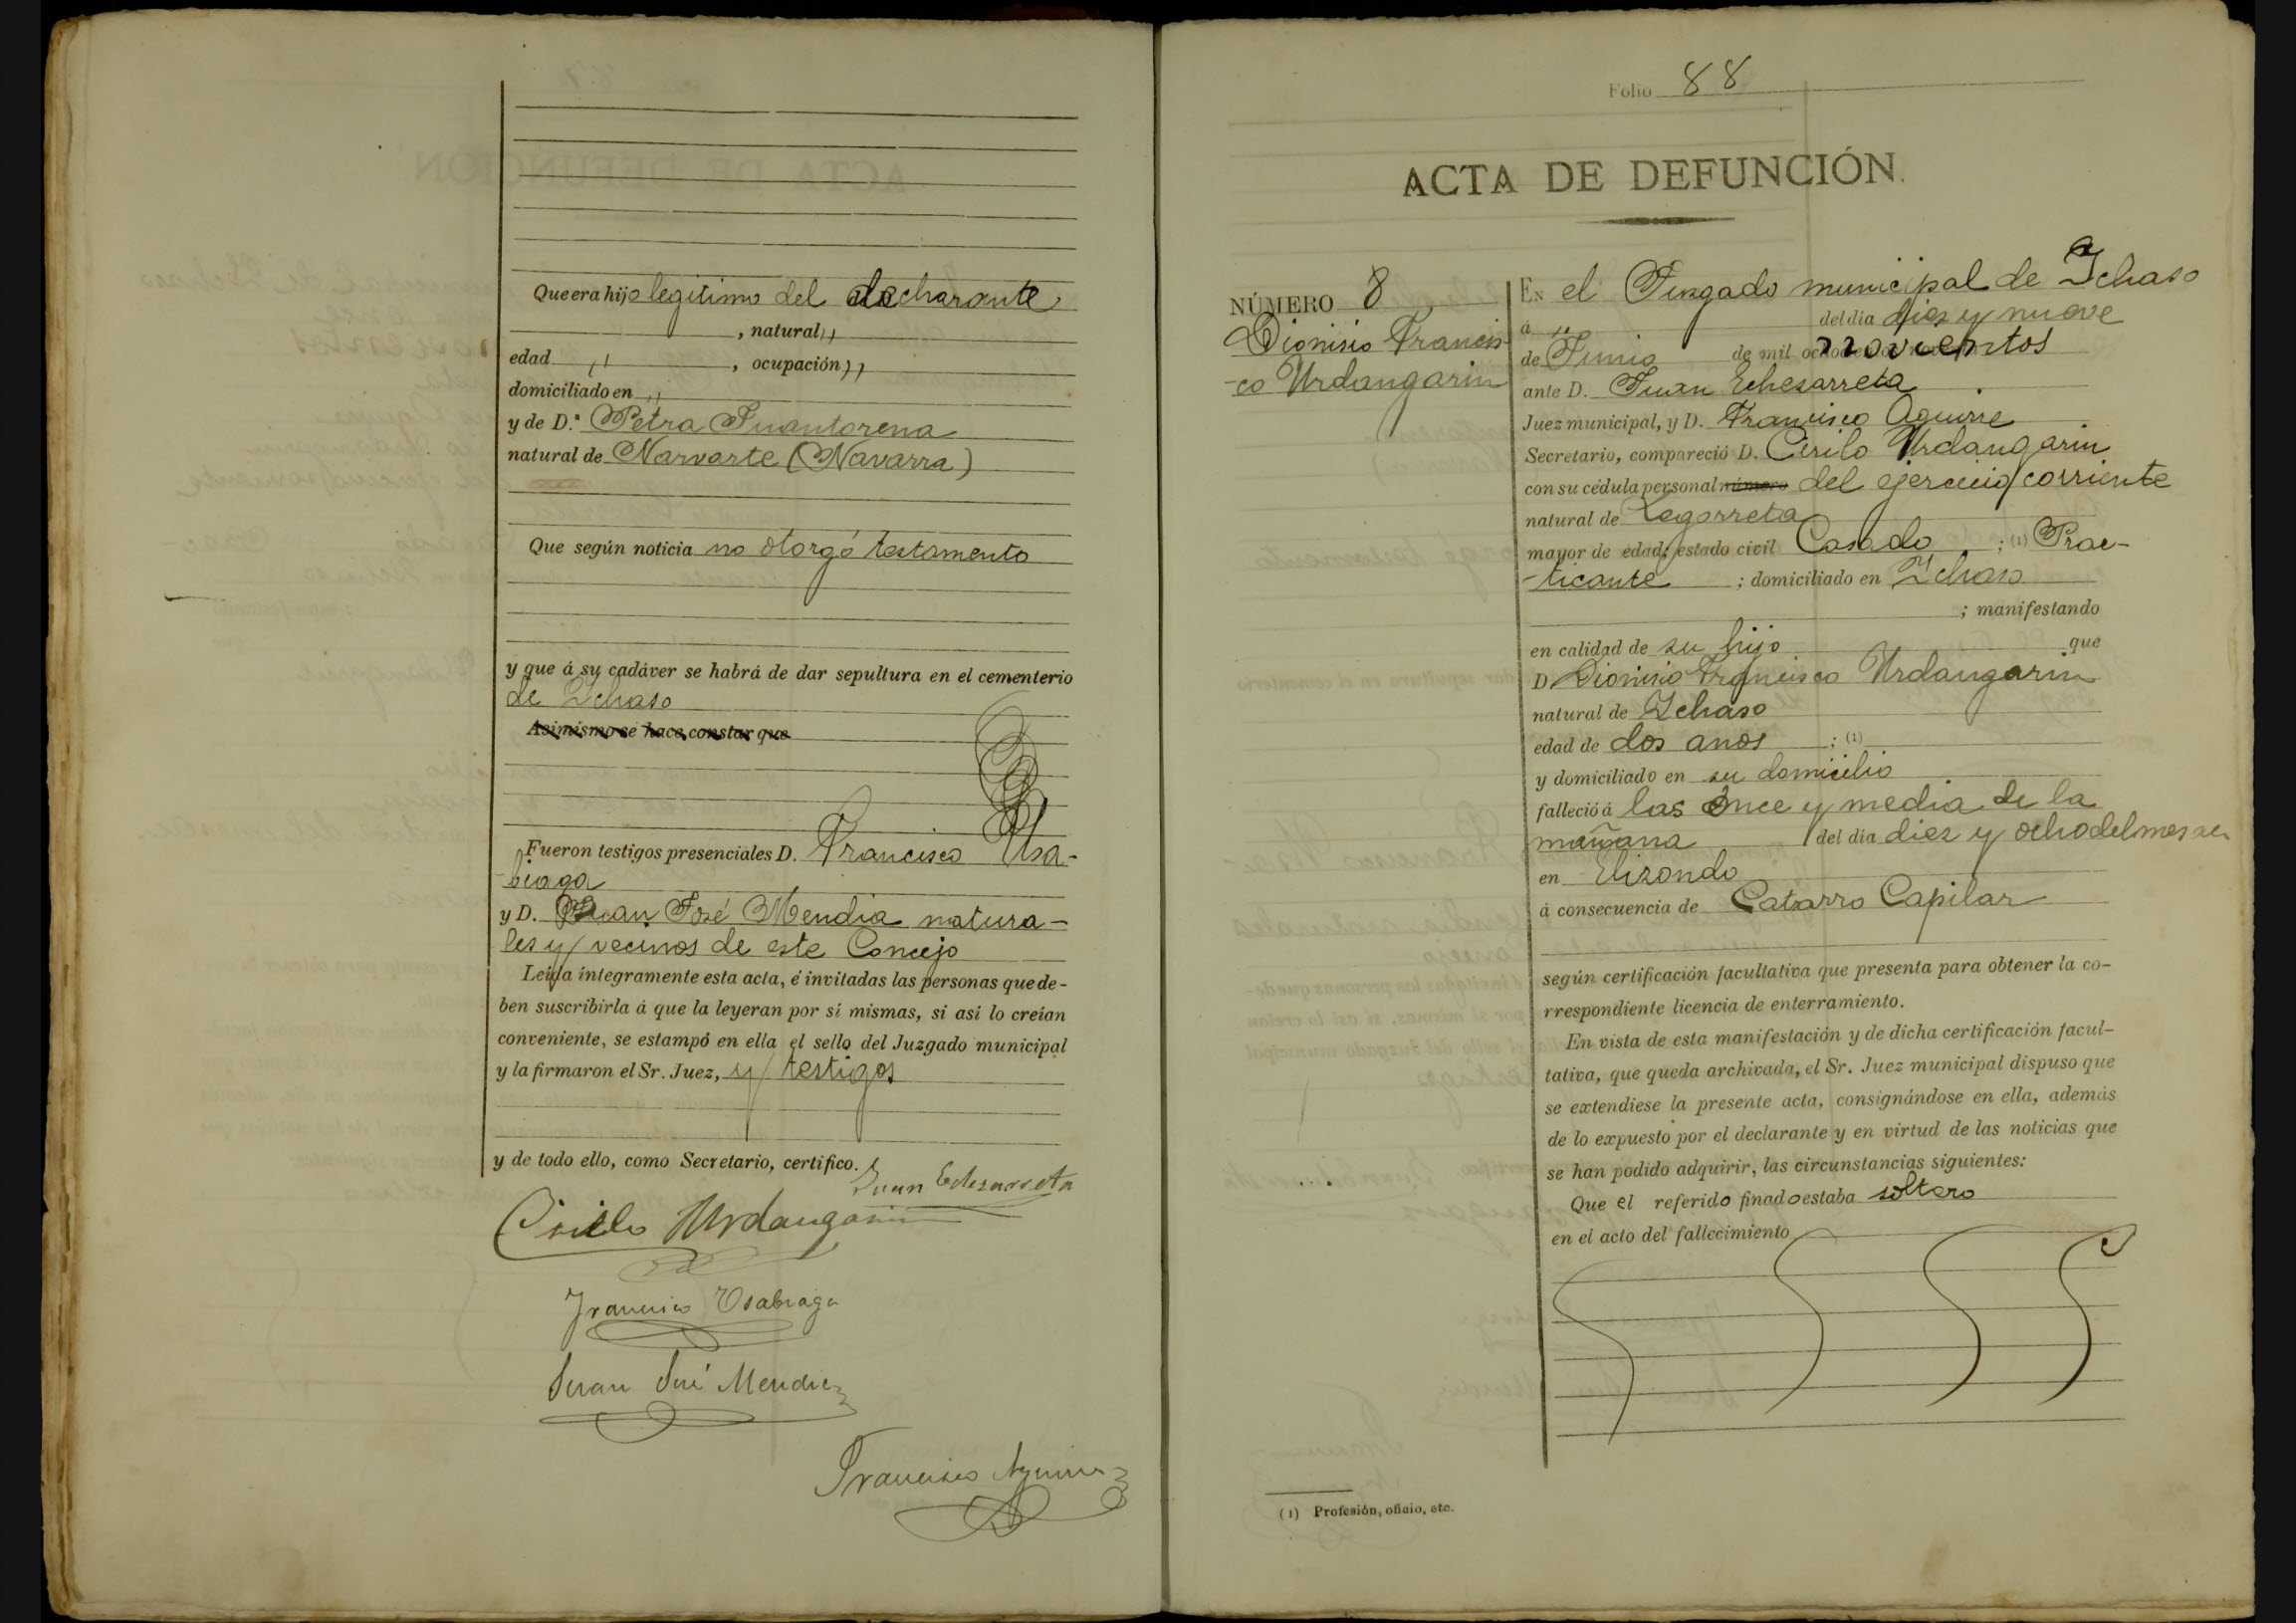 Que era hijo legitimo del declarante
, natural ,,
edad ,, , ocupación ,,
domiciliado en ,,
y de D.ª Petra Juantorena
natural de Narvarte (Navarra)
Que según noticia no otorgó testamento
y que á su cadáver se habrá de dar sepultura en el cementerio
de Ichaso
Asimismo se hace constar que
Fueron testigos presenciales D. Francisco Usa-
biaga
y D. Juan José Mendia natura-
les y vecinos de este Concejo
Leída íntegramente esta acta, é invitadas las personas que de-
ben suscribirla á que la leyeran por sí mismas, si así lo creían
conveniente, se estampó en ella el sello del Juzgado municipal
y la firmaron el Sr. Juez, y testigos
y de todo ello, como Secretario, certifico.
Juan Echezarreta
Cirilo Urdangarin
Francisco Usabiaga
Juan José Mendia
Francisco Aguirre
Folio 88
ACTA DE DEFUNCIÓN.
NÚMERO 8
Dionisio Francis-
-co Urdangarin
EN el Juzgado municipal de Ichaso
á ,, del día diez y nueve
de Junio de mil novecientos
ante D. Juan Echezarreta
Juez municipal, y D. Francisco Aguirre
Secretario, compareció D. Cirilo Urdangarin
con su cédula personal número del ejercicio corriente
natural de Legorreta
mayor de edad, estado civil Casado ; (1) Prac-
-ticante ; domiciliado en Ichaso
; manifestando
en calidad de su hijo que
D. Dionisio Francisco Urdangarin
natural de Ichaso
edad de dos anos ; (1)
y domiciliado en su domicilio
falleció á las once y media de la
mañana del día diez y ocho del mes
en Elizondo
á consecuencia de Catarro Capilar
según certificación facultativa que presenta para obtener la co-
rrespondiente licencia de enterramiento.
En vista de esta manifestación y de dicha certificación facul-
tativa, que queda archivada, el Sr. Juez municipal dispuso que
se extendiese la presente acta, consignándose en ella, además
de lo expuesto por el declarante y en virtud de las noticias que
se han podido adquirir, las circunstancias siguientes:
Que el referido finado estaba soltero
en el acto del fallecimiento
(1) Profesión, oficio, etc.